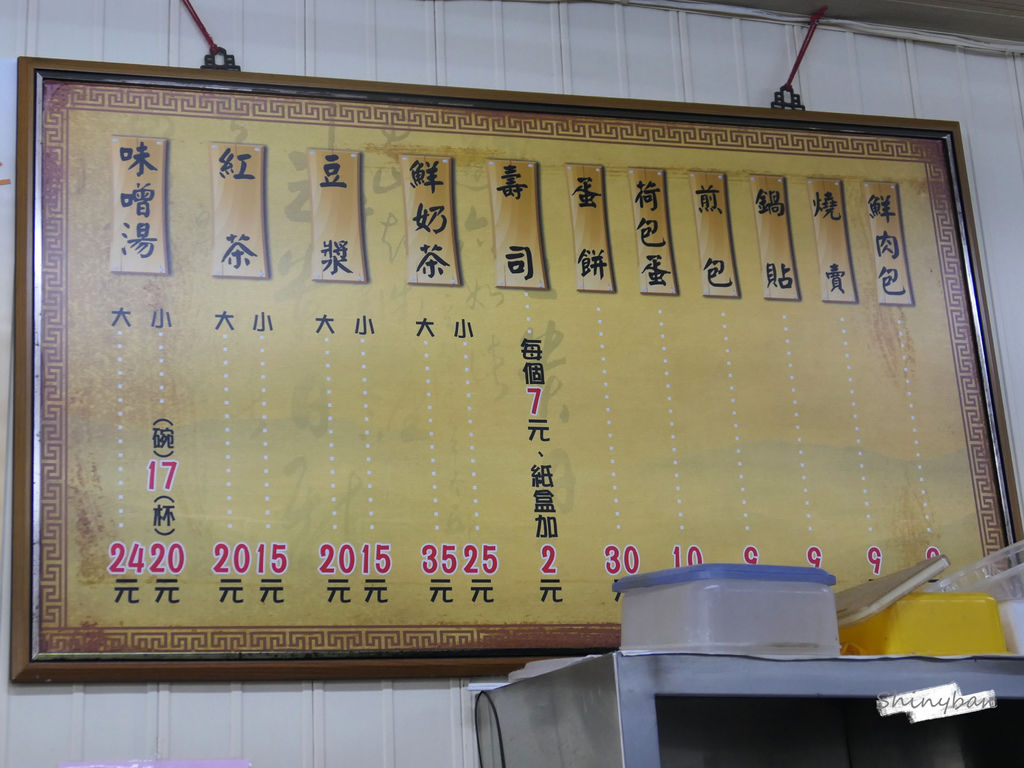 鮮肉包 9
燒賣 9
鍋貼 9
煎包 9
荷包蛋 10
蛋餅 30
壽司 每個7元、紙盒加2元
鮮奶茶 大 35元 小 25元
豆漿 大 20元 小 15元
紅茶 大 20元 小 15元
味噌湯 大 24元 小 (碗)17(杯)20元
Shinyban